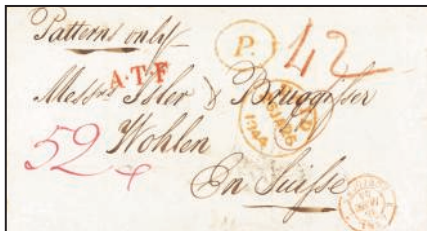 Patterns only
P. 42
A·T·F
Messrs Isler & Bruggisser
52
Wohlen
En Suisse